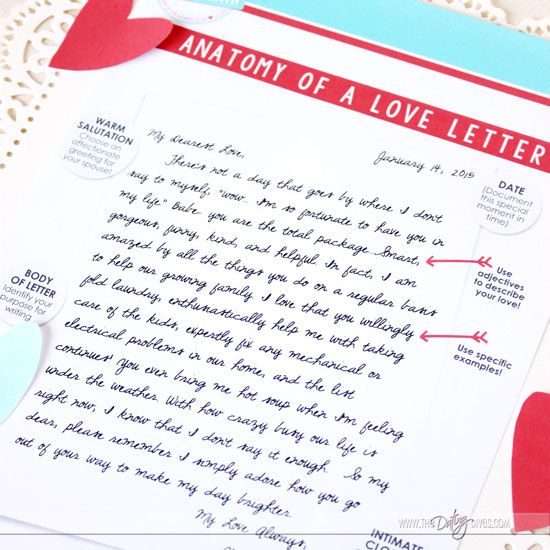 ANATOMY OF A LOVE LETTER
WARM
SALUTATION
Choose an
affectionate
greeting for
your spouse!
My Dearest Love,
January 14, 2015
DATE
(Document
this special
moment in
time)
There's not a day that goes by where I don't
say to myself, "wow. I'm so fortunate to have you in
my life." Babe, you are the total package. Smart,
gorgeous, funny, kind, and helpful. In fact, I am
amazed by all the things you do on a regular basis
to help our growing family. I love that you willingly
fold laundry, enthusiastically help me with taking
care of the kids, expertly fix any mechanical or
electrical problems in our home, and the list
continues! You even bring me hot soup when I'm feeling
under the weather. With how crazy busy our life is
right now, I know that I don't say it enough. So my
dear, please remember I simply adore how you go
out of your way to make my day brighter.
My Love Always,
Use
adjectives
to describe
your love!
Use specific
examples!
BODY
OF LETTER
Identify your
purpose for
writing
INTIMATE
WWW.THEDatingDIVAS.COM